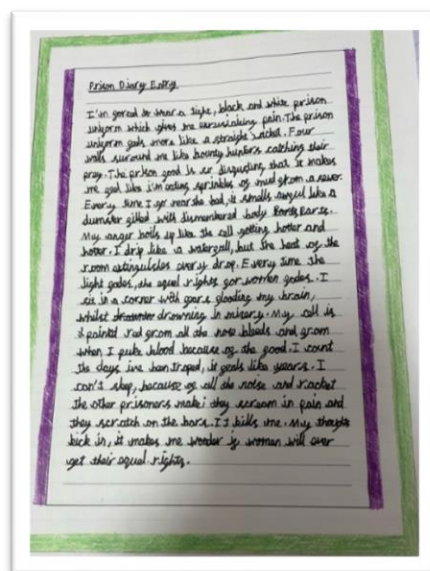 Prison Diary Entry
I'm forced to wear a tight, black and white prison
uniform which gives me excruciating pain. The prison
uniform feels more like a straight jacket. Four
walls surround me like bounty hunters catching their
prey. The prison food is so disgusting, that it makes
me feel like i'm eating sprinkles of mud from a sewer.
Every time I go near the bed, it smells awful like a
dumster filled with dismembered body Parts.
My anger boils up like the cell getting hotter and
hotter. I drip like a waterfall, but the heat of the
room extinguishes every drop. Every time the
light fades, the equal rights for women fades. I
sit in a corner with fears flooding my brain,
whilst drowning in misery. My cell is
painted red from all the nose bleeds and from
when I puke blood because of the food. I count
the days ive been traped, it feels like years. I
can't sleep, because of all the noise and racket
the other prisoners make; they scream in pain and
they scratch on the bars. It kills me. My thoughts
kick in, it makes me wonder if women will ever
get their equal rights.